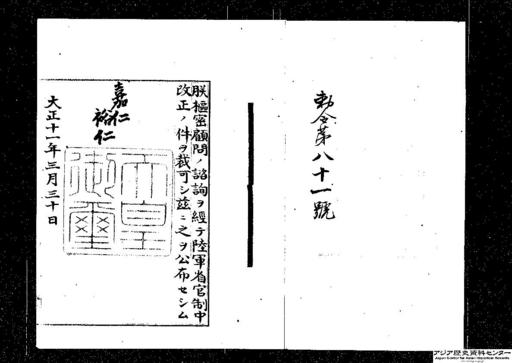 勅令第八十一號
朕樞密顧問ノ諮詢ヲ經テ陸軍省官制中
改正ノ件ヲ裁可シ茲ニ之ヲ公布セシム
嘉仁
裕仁
天皇
御璽
大正十一年三月三十日
アジア歴史資料センター
Japan Center for Asian Historical Records